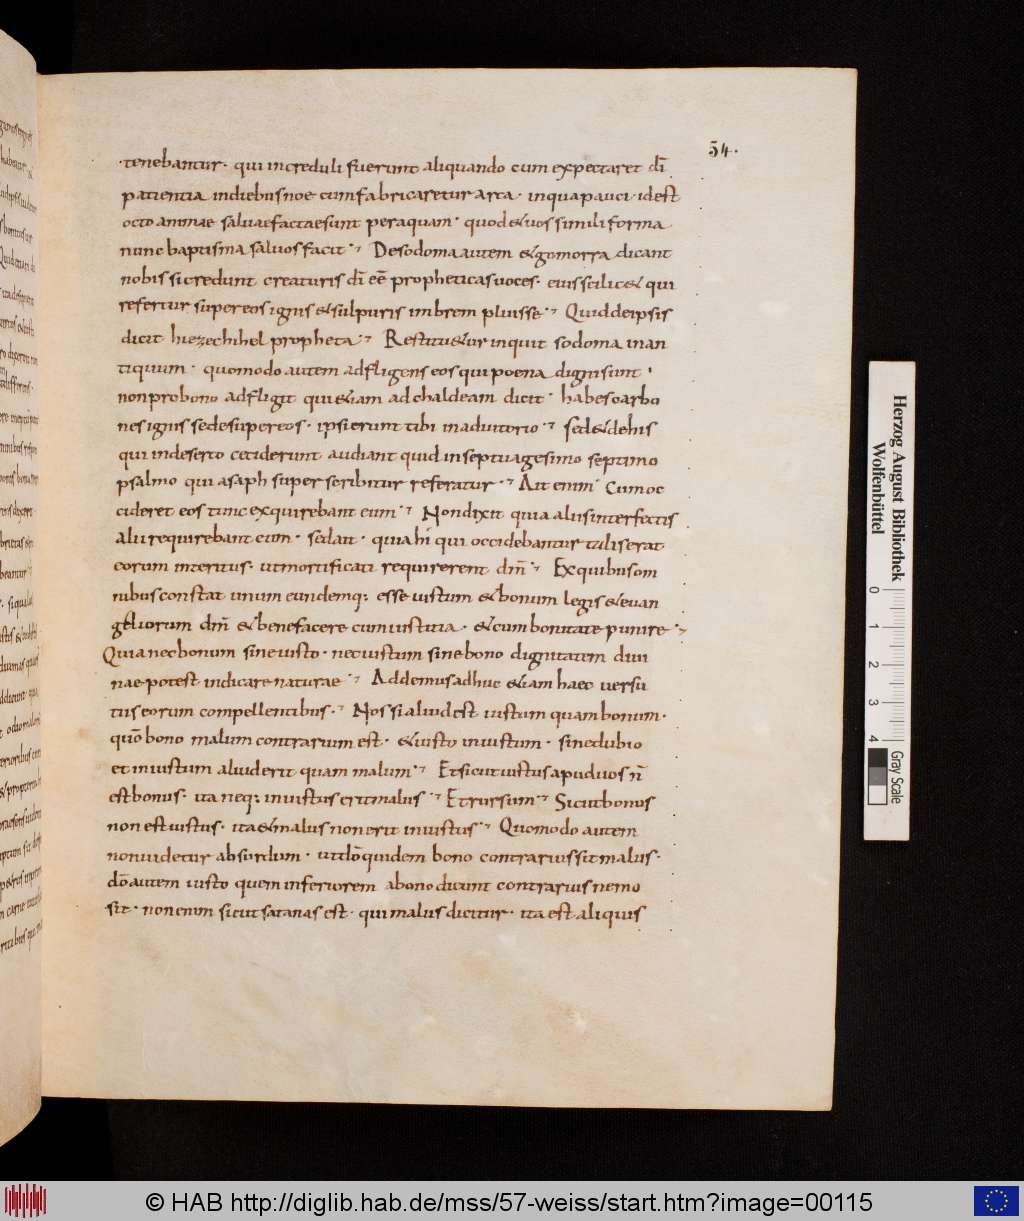 54.
·tenebantur· qui increduli fuerunt aliquando cum expectaret dī
patientia indiebus noe cum fabricaretur arca · inqua pauci · id est
octo animae saluae factae sunt per aquam · quod & uos simili forma
nunc baptisma saluos facit ·⁊ De sodoma autem & gomorra dicant
nobis si credunt creaturis dī eē propheticas uoces · eius scilic& qui
refertur super eos ignis & sulpuris imbrem pluisse ·⁊ Quid de ipsis
dicit hiezechihel propheta ·⁊ Restitu&ur inquit sodoma in an
tiquum · quomodo autem adfligens eos qui poena digni sunt ·
non pro bono adfligit qui &iam ad chaldeam dicit · habes carbo
nes ignis sede super eos · ipsi erunt tibi in adiutorio ·⁊ sed & de his
qui in deserto ceciderunt audiant quid in septuagesimo septimo
psalmo qui asaph super scribitur referatur ·⁊ Ait enim · Cum oc
cideret eos tunc exquirebant eum ·⁊ Non dixit quia aliis interfectis
alii requirebant eum · sed ait · quia hi qui occidebantur talis erat
eorum interitus · ut mortificati requirerent dm̄ ·⁊ Ex quibus om
nibus constat unum eundemq; esse iustum & bonum legis & euan
geliorum dm̄ & bene facere cum iustitia · & cum bonitate punire ·⁊
Quia nec bonum sine iusto · nec iustum sine bono dignitatem diui
nae potest indicare naturae ·⁊ Addemus adhuc &iam haec uersu
tiis eorum compellentibus ·⁊ Nos si aliud est iustum quam bonum ·
quō bono malum contrarium est · & iusto iniustum · sine dubio
et iniustum aliud erit quam malum ·⁊ Et sicut iustus apud uos n̄
est bonus · ita neq; iniustus erit malus ·⁊ Et rursum ·⁊ Sicut bonus
non est iustus · ita & malus non erit iniustus ·⁊ Quomodo autem
non uidetur absurdum · ut dō quidem bono contrarius sit malus ·
dō autem iusto quem inferiorem a bono dicunt contrarius nemo
sit · non enim sicut satanas est · qui malus dicitur · ita est aliquis
Herzog August Bibliothek
Wolfenbüttel
0 1 2 3 4
Gray Scale
© HAB http://diglib.hab.de/mss/57-weiss/start.htm?image=00115